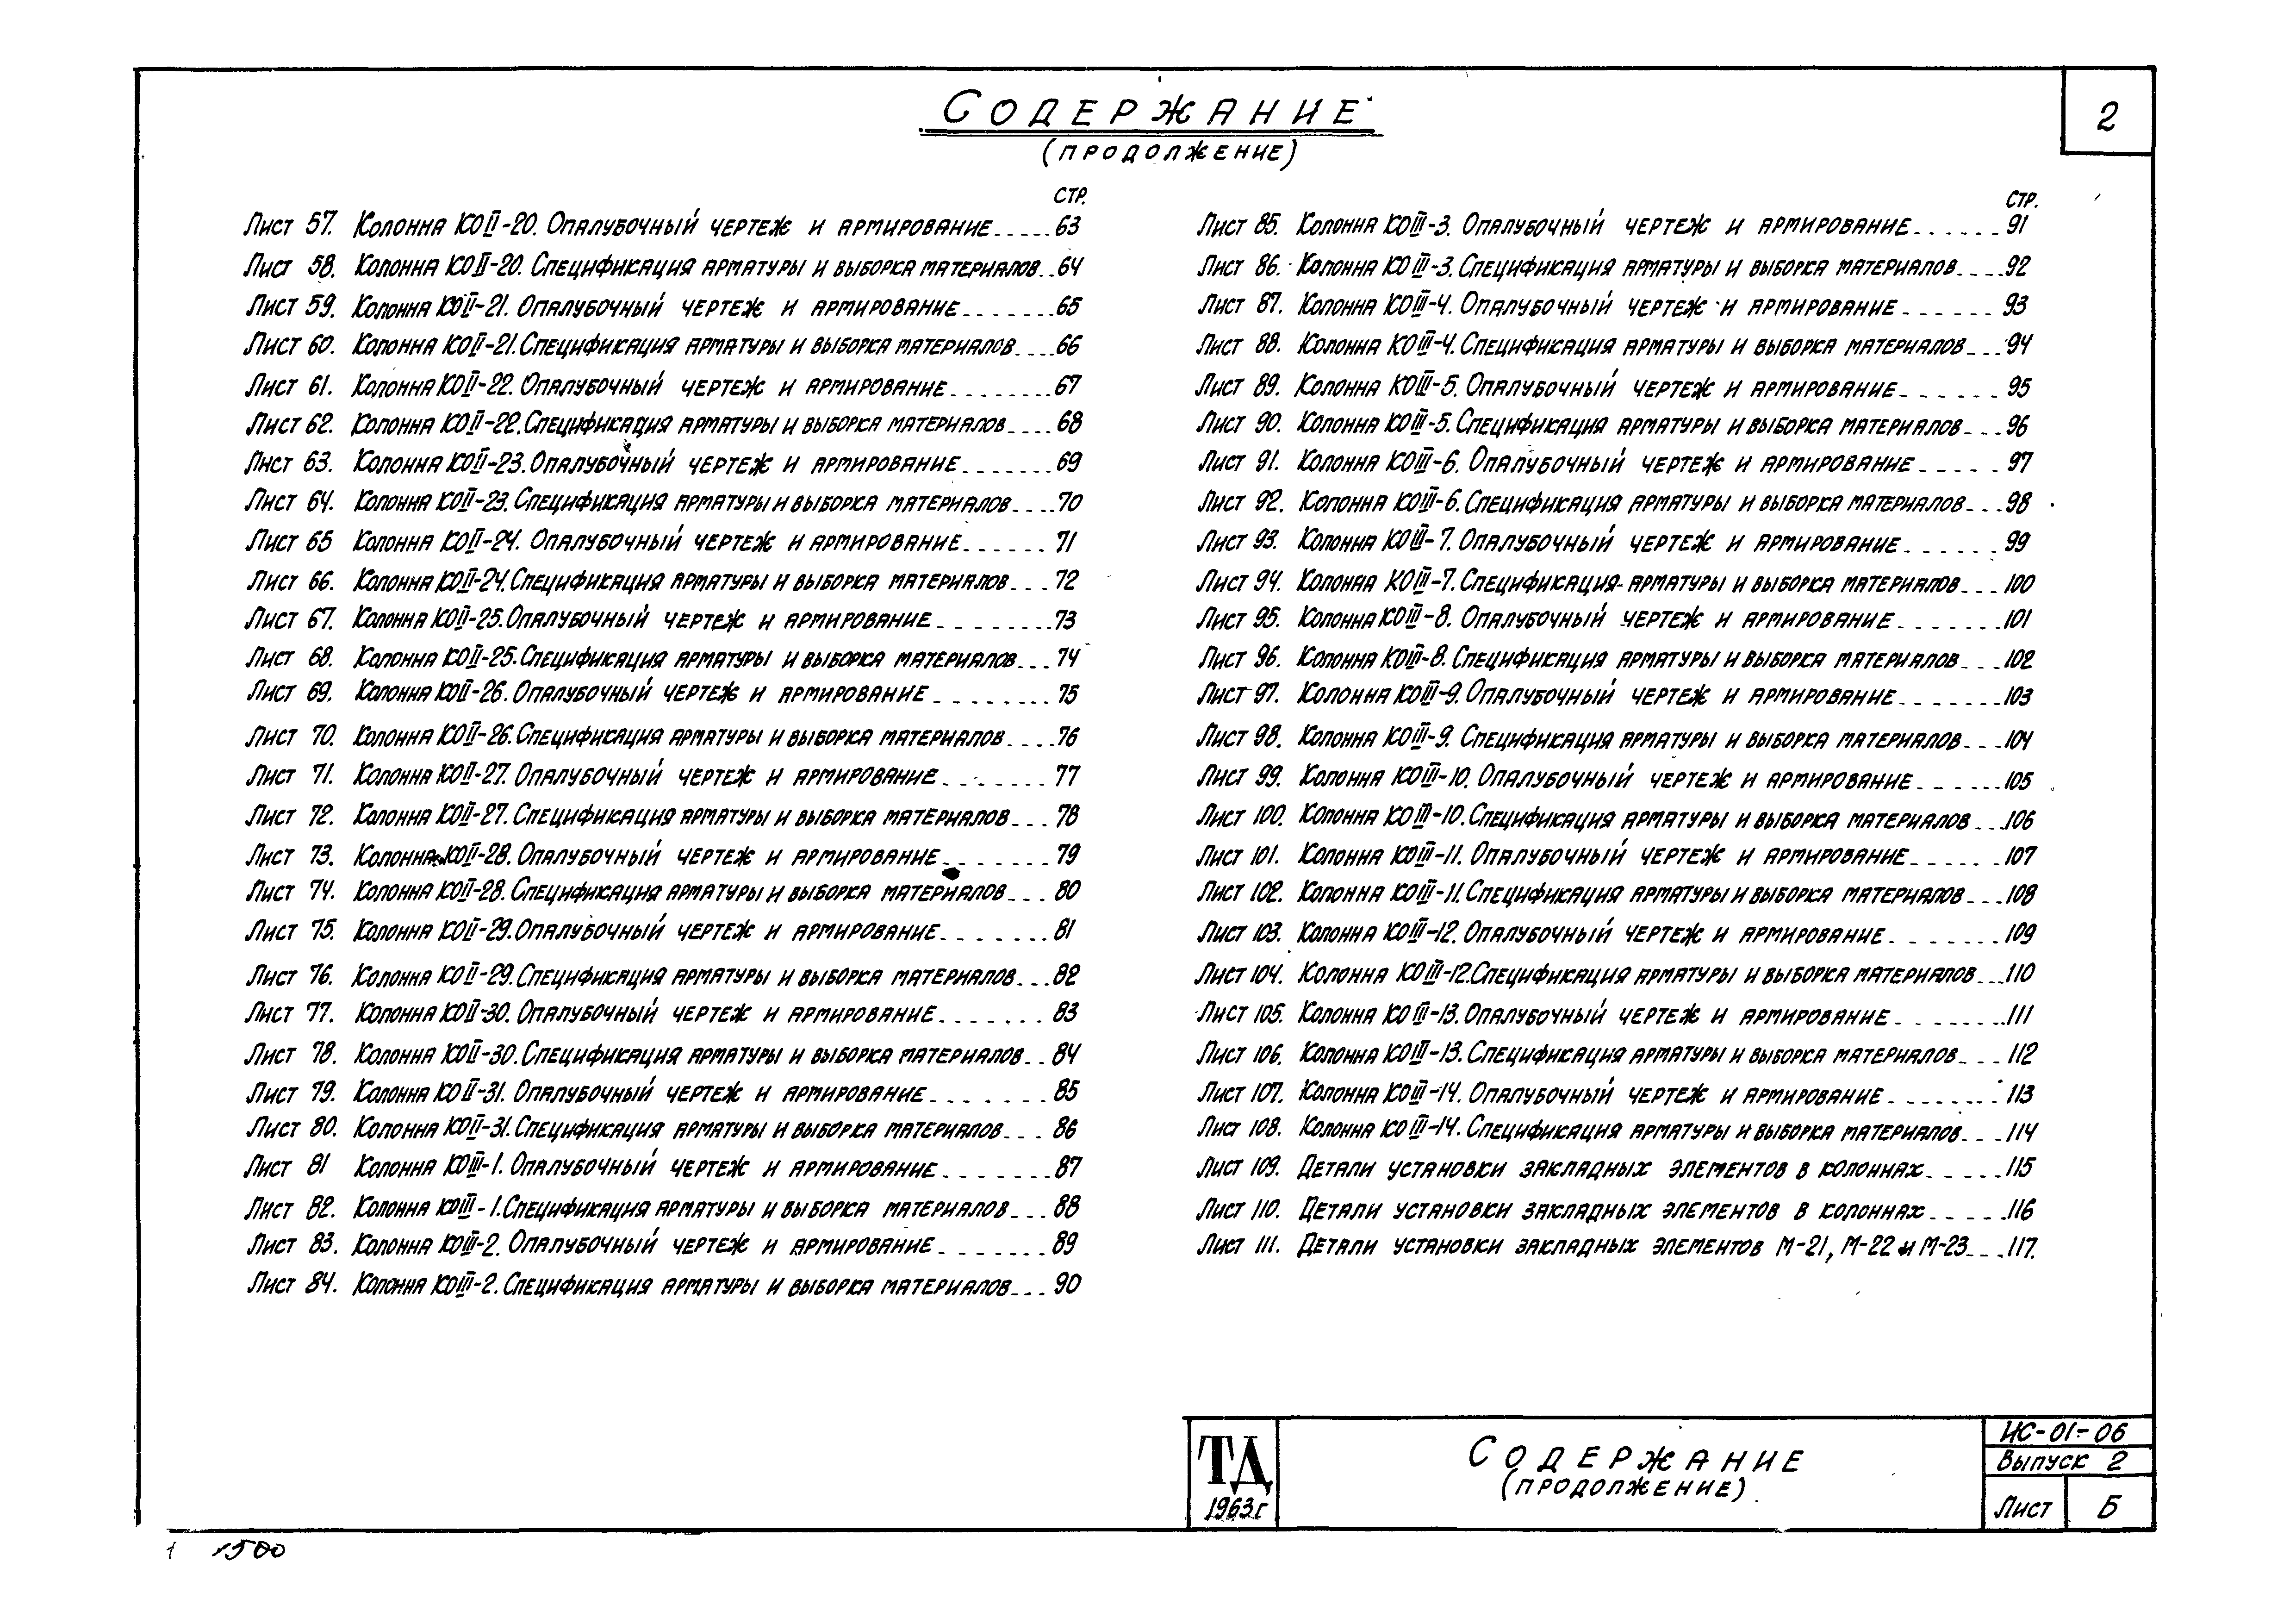 Содержание
(продолжение)
2
стр.
Лист 57. Колонна КОII-20. Опалубочный чертеж и армирование.....63
Лист 58. Колонна КОII-20. Спецификация арматуры и выборка материалов..64
Лист 59. Колонна КОII-21. Опалубочный чертеж и армирование.......65
Лист 60. Колонна КОII-21. Спецификация арматуры и выборка материалов....66
Лист 61. Колонна КОII-22. Опалубочный чертеж и армирование........67
Лист 62. Колонна КОII-22. Спецификация арматуры и выборка материалов....68
Лист 63. Колонна КОII-23. Опалубочный чертеж и армирование.......69
Лист 64. Колонна КОII-23. Спецификация арматуры и выборка материалов....70
Лист 65 Колонна КОII-24. Опалубочный чертеж и армирование......71
Лист 66. Колонна КОII-24. Спецификация арматуры и выборка материалов...72
Лист 67. Колонна КОII-25. Опалубочный чертеж и армирование.........73
Лист 68. Колонна КОII-25. Спецификация арматуры и выборка материалов...74
Лист 69. Колонна КОII-26. Опалубочный чертеж и армирование........75
Лист 70. Колонна КОII-26. Спецификация арматуры и выборка материалов....76
Лист 71. Колонна КОII-27. Опалубочный чертеж и армирование.......77
Лист 72. Колонна КОII-27. Спецификация арматуры и выборка материалов...78
Лист 73. Колонна КОII-28. Опалубочный чертеж и армирование.......79
Лист 74. Колонна КОII-28. Спецификация арматуры и выборка материалов...80
Лист 75. Колонна КОII-29. Опалубочный чертеж и армирование.......81
Лист 76. Колонна КОII-29. Спецификация арматуры и выборка материалов...82
Лист 77. Колонна КОII-30. Опалубочный чертеж и армирование.......83
Лист 78. Колонна КОII-30. Спецификация арматуры и выборка материалов..84
Лист 79. Колонна КОII-31. Опалубочный чертеж и армирование.......85
Лист 80. Колонна КОII-31. Спецификация арматуры и выборка материалов...86
Лист 81 Колонна КОIII-1. Опалубочный чертеж и армирование.......87
Лист 82. Колонна КОIII-1. Спецификация арматуры и выборка материалов...88
Лист 83. Колонна КОIII-2. Опалубочный чертеж и армирование.......89
Лист 84. Колонна КОIII-2. Спецификация арматуры и выборка материалов...90
стр.
Лист 85. Колонна КОIII-3. Опалубочный чертеж и армирование......91
Лист 86. Колонна КОIII-3. Спецификация арматуры и выборка материалов....92
Лист 87. Колонна КОIII-4. Опалубочный чертеж и армирование......93
Лист 88. Колонна КОIII-4. Спецификация арматуры и выборка материалов...94
Лист 89. Колонна КОIII-5. Опалубочный чертеж и армирование......95
Лист 90. Колонна КОIII-5. Спецификация арматуры и выборка материалов...96
Лист 91. Колонна КОIII-6. Опалубочный чертеж и армирование.....97
Лист 92. Колонна КОIII-6. Спецификация арматуры и выборка материалов...98
Лист 93. Колонна КОIII-7. Опалубочный чертеж и армирование......99
Лист 94. Колонна КОIII-7. Спецификация арматуры и выборка материалов...100
Лист 95. Колонна КОIII-8. Опалубочный чертеж и армирование......101
Лист 96. Колонна КОIII-8. Спецификация арматуры и выборка материалов...102
Лист 97. Колонна КОIII-9. Опалубочный чертеж и армирование.......103
Лист 98. Колонна КОIII-9. Спецификация арматуры и выборка материалов...104
Лист 99. Колонна КОIII-10. Опалубочный чертеж и армирование......105
Лист 100. Колонна КОIII-10. Спецификация арматуры и выборка материалов...106
Лист 101. Колонна КОIII-11. Опалубочный чертеж и армирование.....107
Лист 102. Колонна КОIII-11. Спецификация арматуры и выборка материалов...108
Лист 103. Колонна КОIII-12. Опалубочный чертеж и армирование.......109
Лист 104. Колонна КОIII-12. Спецификация арматуры и выборка материалов...110
Лист 105. Колонна КОIII-13. Опалубочный чертеж и армирование.......111
Лист 106. Колонна КОIII-13. Спецификация арматуры и выборка материалов...112
Лист 107. Колонна КОIII-14. Опалубочный чертеж и армирование.......113
Лист 108. Колонна КОIII-14. Спецификация арматуры и выборка материалов...114
Лист 109. Детали установки закладных элементов в колоннах.....115
Лист 110. Детали установки закладных элементов в колоннах.....116
Лист 111. Детали установки закладных элементов М-21, М-22 и М-23...117.
ТД
1963г
Содержание
(продолжение)
ИС-01-06
Выпуск 2
Лист Б
1500